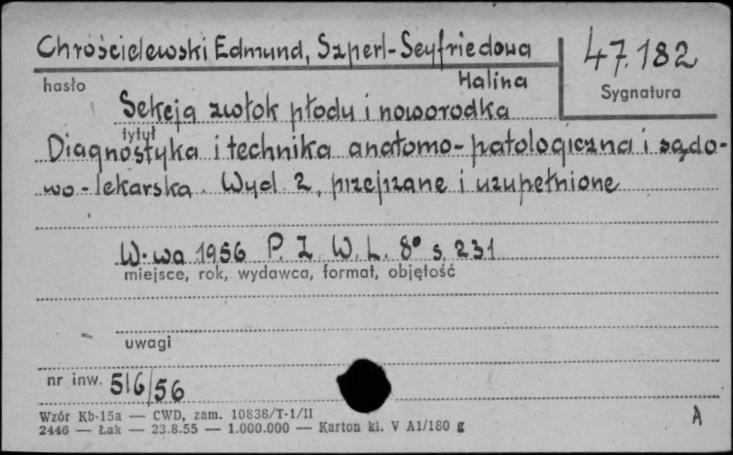 Chróścielewski Edmund, Szperl-Seyfriedowa
Halina
47.182
hasło
Sygnatura
Sekcja zwłok płodu i noworodka
tytuł
Diagnostyka i technika anatomo-patologiczna i sądo-
wo-lekarska. Wyd 2, przejrzane i uzupełnione
W-wa 1956 P. Z. W. L. 8° s. 231
miejsce, rok, wydawca, format, objętość
uwagi
nr inw. 516/56
Wzór Kb-15a — CWD, zam. 10838/T-1/II
2446 — Łak — 23.8.55 — 1.000.000 — Karton kl. V A1/180 g
A